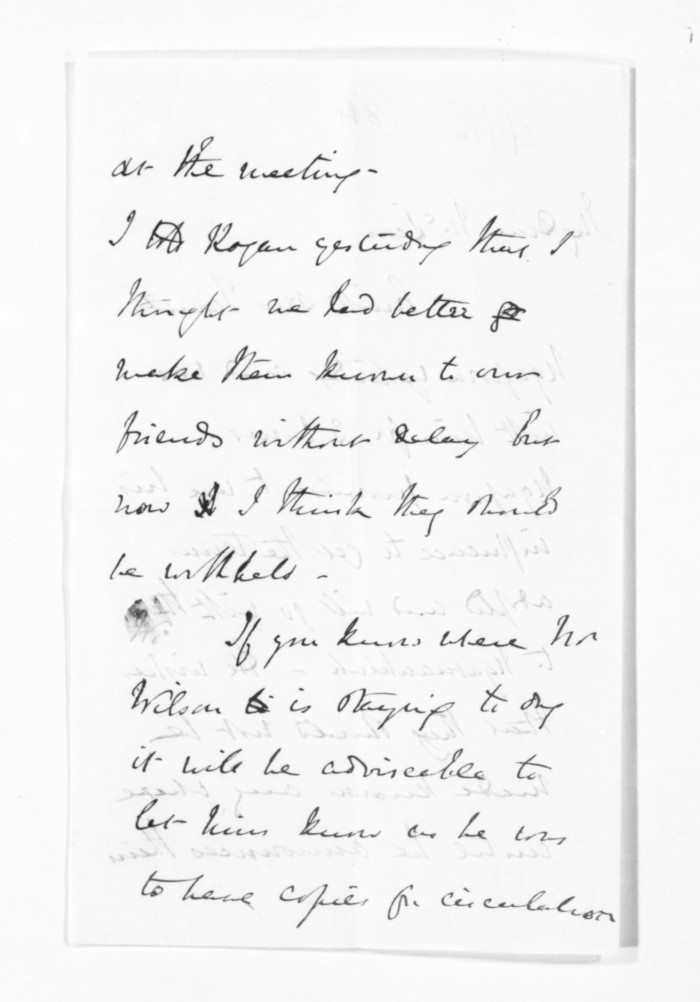 at the meeting -
I told Rogan yesterday that I
thought we had better
make them known to our
friends without delay but
now I think they should
be withheld -
If you know where Mr
Wilson is staying to day
it will be adviseable to
let him know as he was
to have copies for circulation